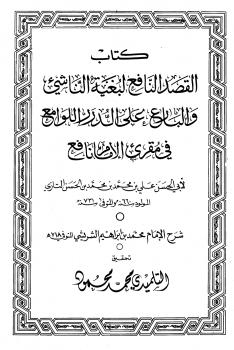 كتاب
القصد النافع لبغية الناشئ
والبارع على الدرر اللوامع
في مقرئ الإمام نافع
لأبي الحسن علي بن محمد بن محمد بن الحسن التازي
المولود
شرح الإمام محمد بن إبراهيم الشريشي المتوفى ٧١٨هـ
تحقيق
التلميدي محمد محمود